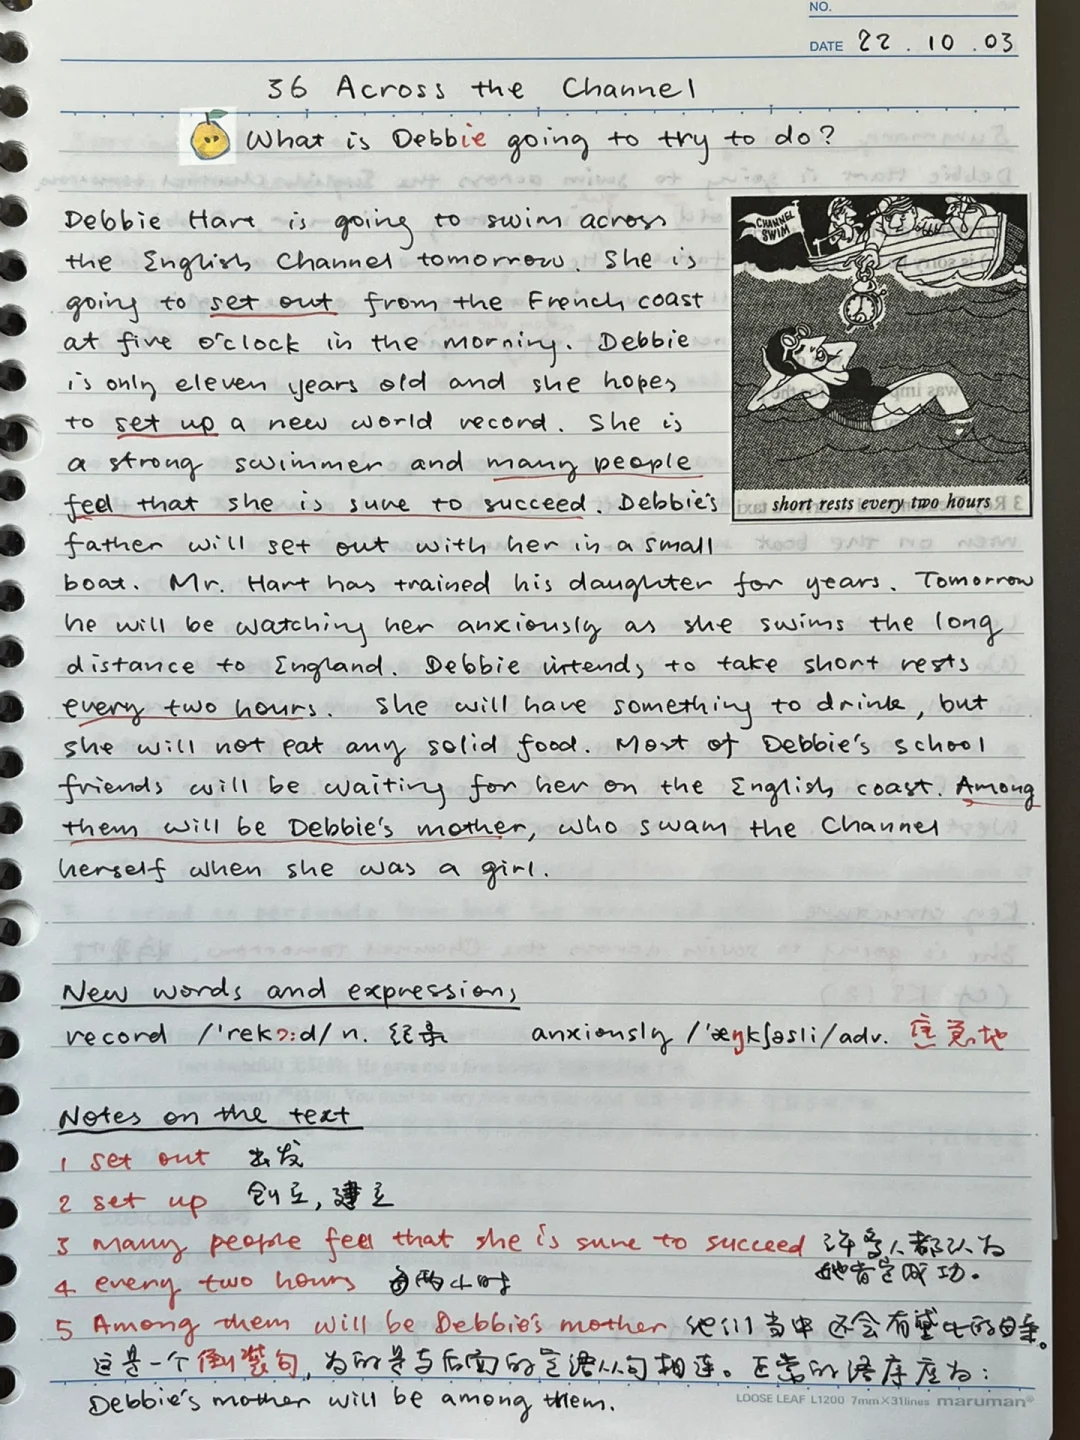 NO.
DATE 22 . 10 . 03
36 Across the Channel
What is Debbie going to try to do?
Debbie Hart is going to swim across
the English Channel tomorrow. She is
going to set out from the French coast
at five o'clock in the morning. Debbie
is only eleven years old and she hopes
to set up a new world record. She is
a strong swimmer and many people
feel that she is sure to succeed. Debbie's
father will set out with her in a small
boat. Mr. Hart has trained his daughter for years. Tomorrow
he will be watching her anxiously as she swims the long
distance to England. Debbie intends to take short rests
every two hours. She will have something to drink, but
she will not eat any solid food. Most of Debbie's school
friends will be waiting for her on the English coast. Among
them will be Debbie's mother, who swam the Channel
herself when she was a girl.
CHANNEL
SWIM
short rests every two hours
New words and expressions
record /'rekɔ:d/ n. 纪录 anxiously /'æŋkʃəsli/adv. 焦急地
Notes on the text
1 set out 出发
2 set up 创立,建立
3 many people feel that she is sure to succeed 许多人都认为
她肯定成功。
4 every two hours 每两小时
5 Among them will be Debbie's mother 他们当中还会有黛比的母亲。
这是一个倒装句,为的是与后面的定语从句相连。正常的语序应为:
Debbie's mother will be among them.
LOOSE LEAF L1200 7mm×31lines maruman®